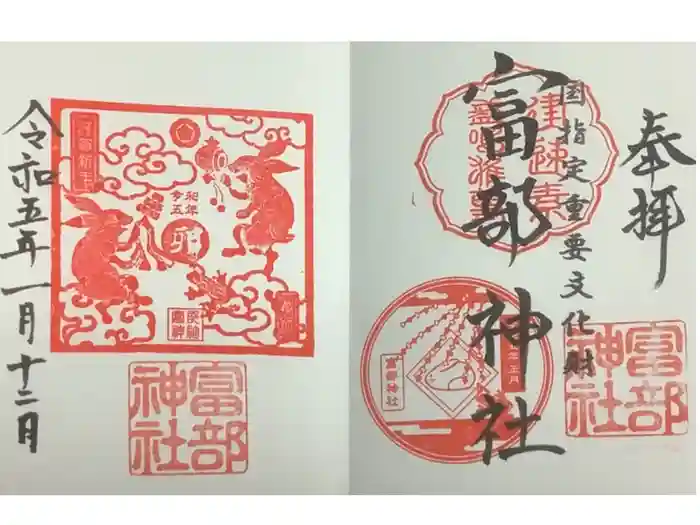 奉拝
国指定重要文化財
富部神社
建速素
盞嗚尊
富部
神社
正月
富部神社
恭賀新年
令和
五年
卯
富部
神社
令和五年一月十二日